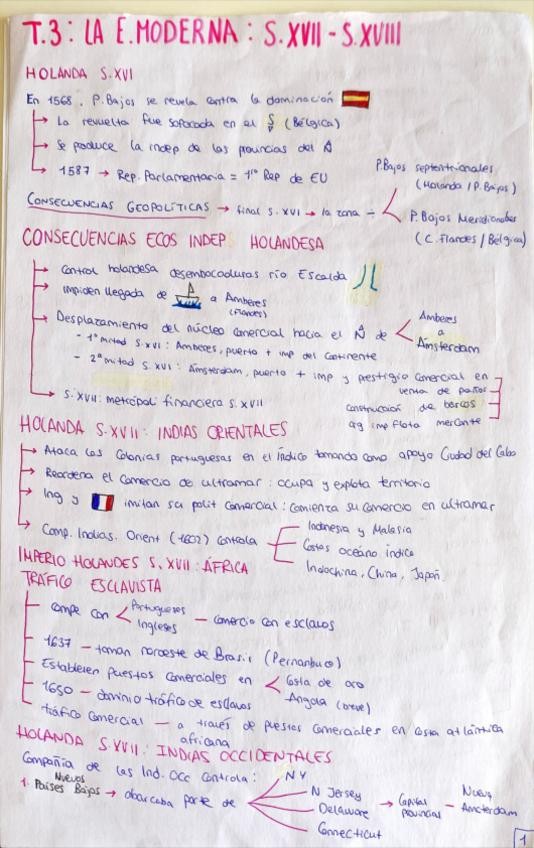 T.3: LA E.MODERNA: S.XVII - S.XVIII
HOLANDA S.XVI
En 1568, P.Bajos se revela contra la dominación
La revuelta fue soforada en el S (Bélgica)
Se produce la indep de las provincias del N
1587 → Rep. Parlamentaria = 1ª Rep de EU
CONSECUENCIAS GEOPOLÍTICAS → final S.XVI → la zona ÷
P.Bajos septentrionales
(Holanda / P.Bajos)
P. Bajos Meridionales
(C. Flandes / Bélgica)
CONSECUENCIAS ECOS INDEP HOLANDESA
Control holandesa desembocaduras río Escalda
Impiden llegada de a Amberes
(Flandes)
Desplazamiento del núcleo comercial hacia el N de
Amberes
a
Ámsterdam
- 1ª mitad S.XVI: Amberes, puerto + imp del continente
- 2ª mitad S.XVI: Ámsterdam, puerto + imp y prestigio comercial en
venta de paños
construcción de barcos
imp flota mercante
S.XVII: metrópoli financiera S.XVII
HOLANDA S.XVII: INDIAS ORIENTALES
Ataca las colonias portuguesas en el Índico tomando como apoyo Ciudad del Cabo
Reordena el comercio de ultramar: ocupa y explota territorio
Ing y imitan su polít comercial: comienza su comercio en ultramar
Comp. Indias. Orient (1602) controla
Indonesia y Malasia
Costas océano índico
Indochina, China, Japón
IMPERIO HOLANDES S.XVII: ÁFRICA
TRÁFICO ESCLAVISTA
Compe con
Portugueses
Ingleses
— comercio con esclavos
1637 — toman noroeste de Brasil (Pernambuco)
Establecen puestos comerciales en
Costa de oro
Angola (breve)
1650 — dominio tráfico de esclavos
tráfico comercial — a través de puestos comerciales en costa atlántica
africana
HOLANDA S.XVII: INDIAS OCCIDENTALES
Compañía de las Ind. Occ controla:
1. Países Bajos → abarcaba parte de
Nuevos
NY
N Jersey
Delaware
Connecticut
→ Capital
provincial
— Nueva
Amsterdam
1